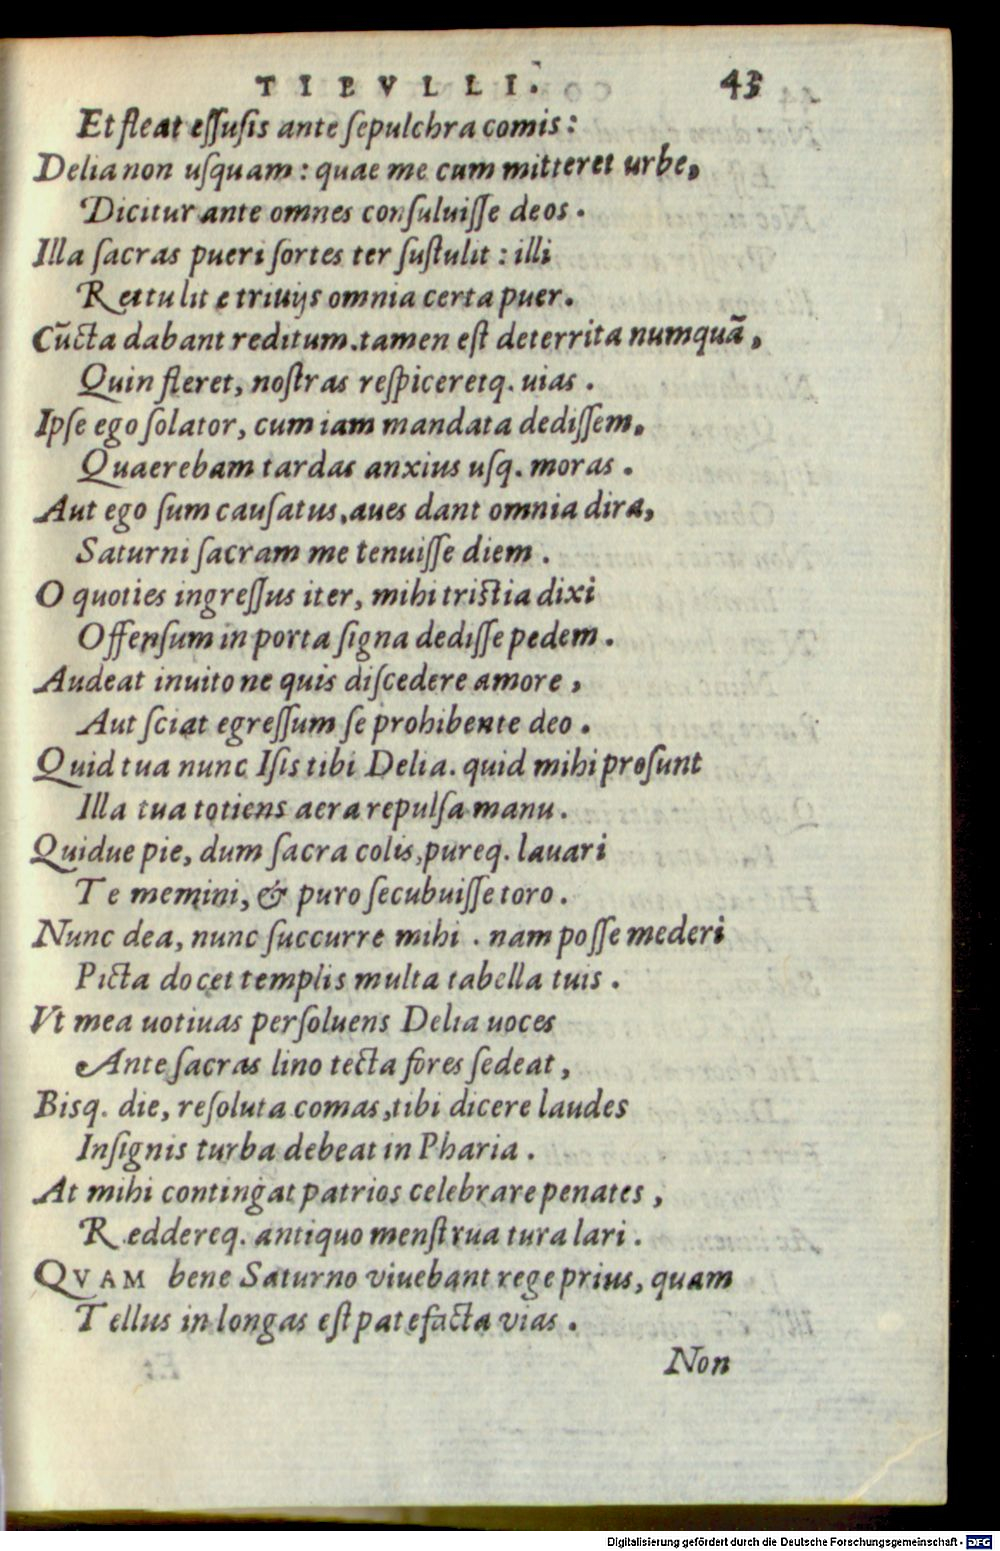 TIBVLLI. 43
Et fleat effusis ante sepulchra comis:
Delia non usquam: quae me cum mitteret urbe,
Dicitur ante omnes consuluisse deos.
Illa sacras pueri sortes ter sustulit: illi
Rettulit e triuijs omnia certa puer.
Cūcta dabant reditum. tamen est deterrita numquā,
Quin fleret, nostras respiceretq. uias.
Ipse ego solator, cum iam mandata dedissem,
Quaerebam tardas anxius usq. moras.
Aut ego sum causatus, aues dant omnia dira,
Saturni sacram me tenuisse diem.
O quoties ingressus iter, mihi tristia dixi
Offensum in porta signa dedisse pedem.
Audeat inuito ne quis discedere amore,
Aut sciat egressum se prohibente deo.
Quid tua nunc Isis tibi Delia. quid mihi prosunt
Illa tua totiens aera repulsa manu.
Quidue pie, dum sacra colis, pureq. lauari
Te memini, & puro secubuisse toro.
Nunc dea, nunc succurre mihi. nam posse mederi
Picta docet templis multa tabella tuis.
Vt mea uotiuas persoluens Delia uoces
Ante sacras lino tecta fores sedeat,
Bisq. die, resoluta comas, tibi dicere laudes
Insignis turba debeat in Pharia.
At mihi contingat patrios celebrare penates,
Reddereq. antiquo menstrua tura lari.
QVAM bene Saturno viuebant rege prius, quam
Tellus in longas est patefacta vias.
Non
Digitalisierung gefördert durch die Deutsche Forschungsgemeinschaft - DFG